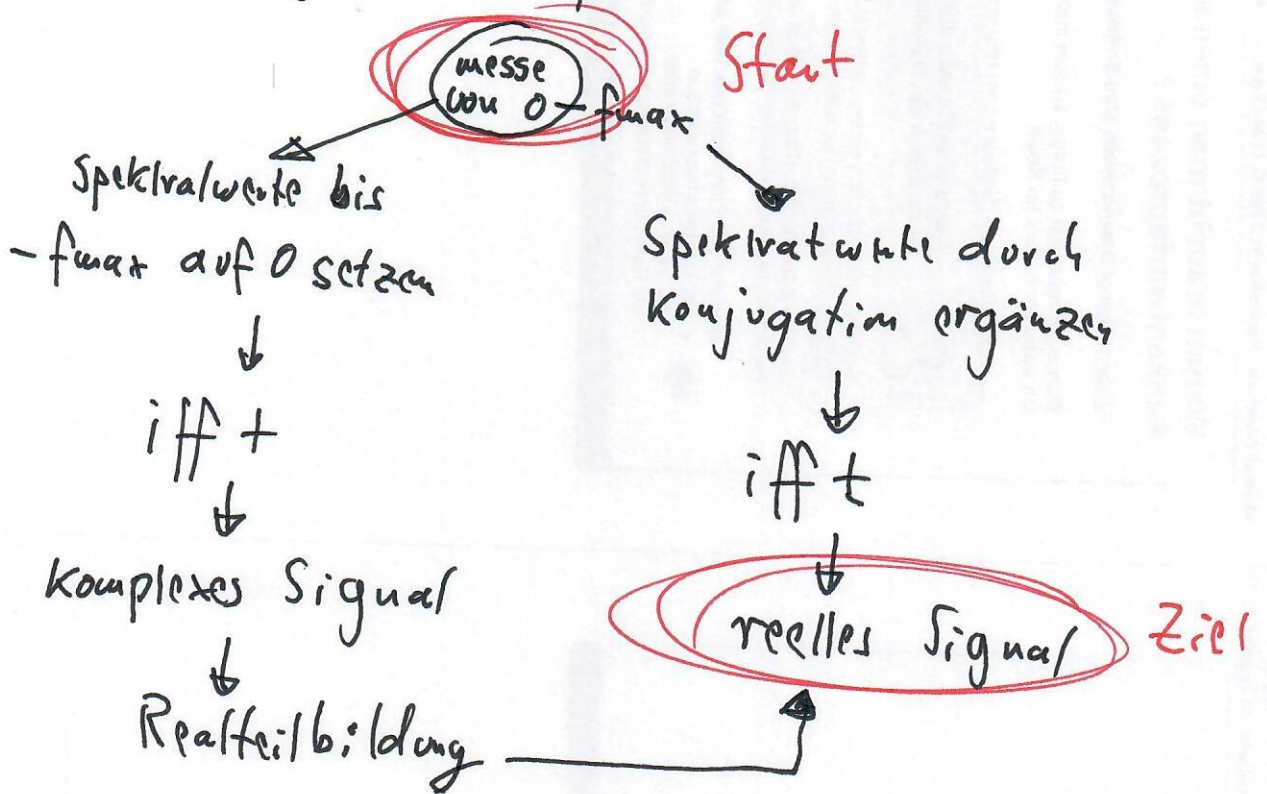 Start
messe
von 0 - fmax
Spektralwerte bis
- fmax auf 0 setzen
ifft
Komplexes Signal
Realteilbildung
Spektralwerte durch
Konjugation ergänzen
ifft
reelles Signal
Ziel